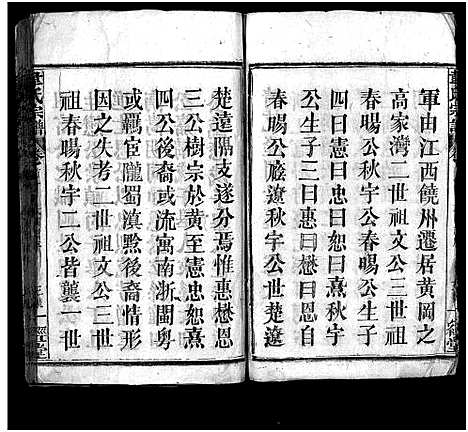 軍由江西饒州遷居黃岡之
高家灣二世祖文公三世祖
春暘公秋宇公春暘公生子
四曰憲曰忠曰恕曰熹秋宇
公生子三曰惠曰懋曰恩自
春暘公廕遼秋宇公世楚遼
楚遠隔支遂分焉惟惠懋恩
三公樹宗於黃至憲忠恕熹
四公後裔或流寓南浙閩粵
或羈宦隴蜀滇黔後裔情形
因之失考二世祖文公三世
祖春暘秋宇二公皆襲一世
一經堂